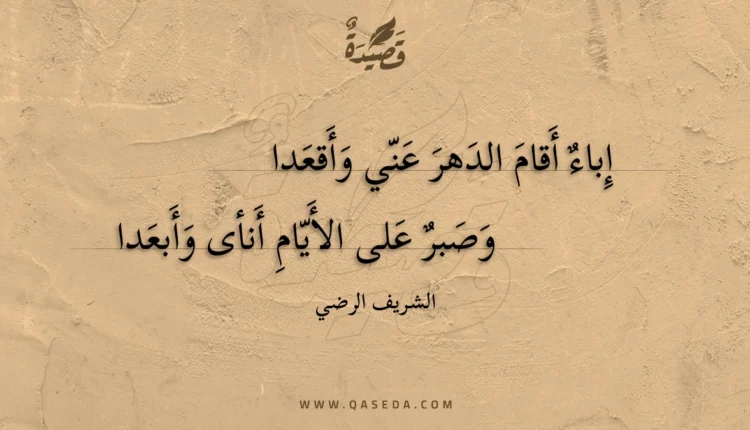 قَصِيدَةٌ
إِباءٌ أَقامَ الدَهرَ عَنّي وَأَقعَدا
وَصَبرٌ عَلى الأَيّامِ أَنأى وَأَبعَدا
الشريف الرضي
WWW.QASEDA.COM